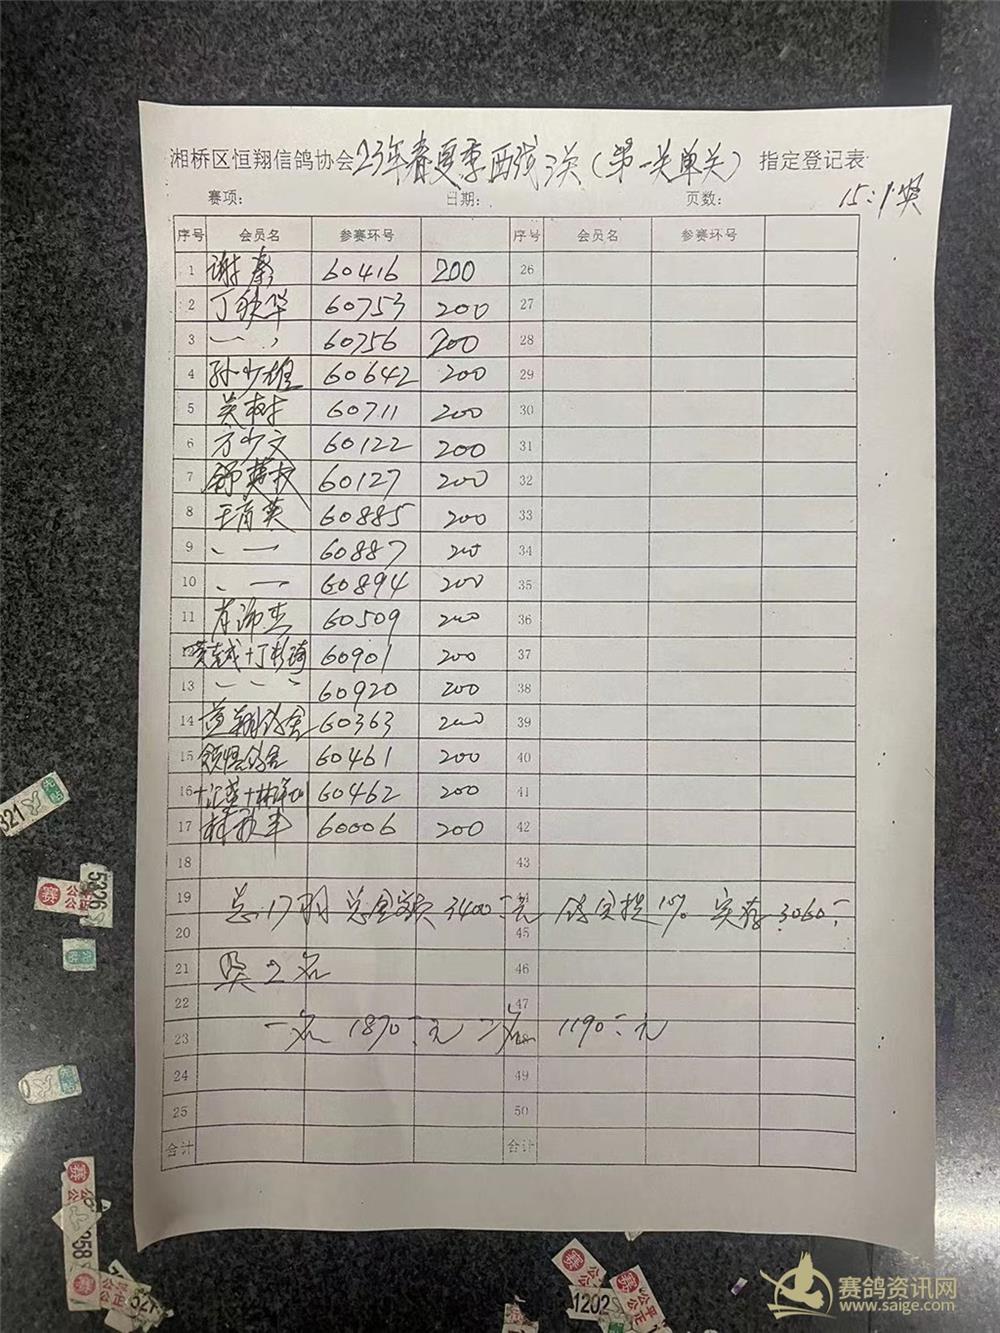 湘桥区恒翔信鸽协会23年春夏季西线3关(第一关单关) 指定登记表
赛项: 日期: 页数: 15:1奖
序号 会员名 参赛环号 序号 会员名 参赛环号
1 谢秦 60416 200 26
2 丁钦华 60753 200 27
3 一 , 60756 200 28
4 孙少雄 60642 200 29
5 吴树 60711 200 30
6 方少文 60122 200 31
7 60127 200 32
8 王育英 60885 200 33
9 、一 60887 200 34
10 、一 60894 200 35
11 肖沛杰 60509 200 36
12 60901 200 37
13 、、、 60920 200 38
14 鸽舍 60363 200 39
15 鸽舍 60461 200 40
16 60462 200 41
17 60006 200 42
18 43
19 总17羽 总金额3400元 10% 实存3060元 44
20 45
21 奖2名 46
22 47
23 一名 1870元 二名 1190元
24 49
25 50
合计 合计
321
赛 公 公正 5326
赛 公 258
赛 公 公正 521
赛 公 1202
赛 公平 公正
赛鸽资讯网
www.saige.com